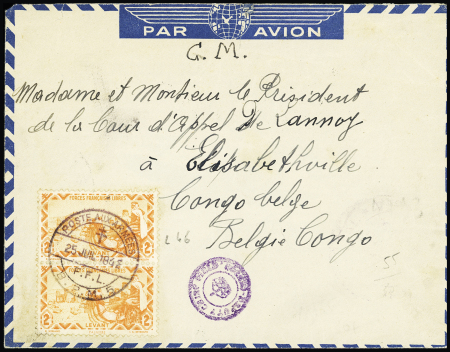 PAR AVION
G.M.
Madame et Monsieur le Président
de la Cour d'Appel De Lannoy
à Elisabethville
Congo belge
Belgie Congo
FORCES FRANÇAISES LIBRES
POSTE AUX ARMEES
25 JUIL 194
F.F.L.
2 2
LEVANT
2 2